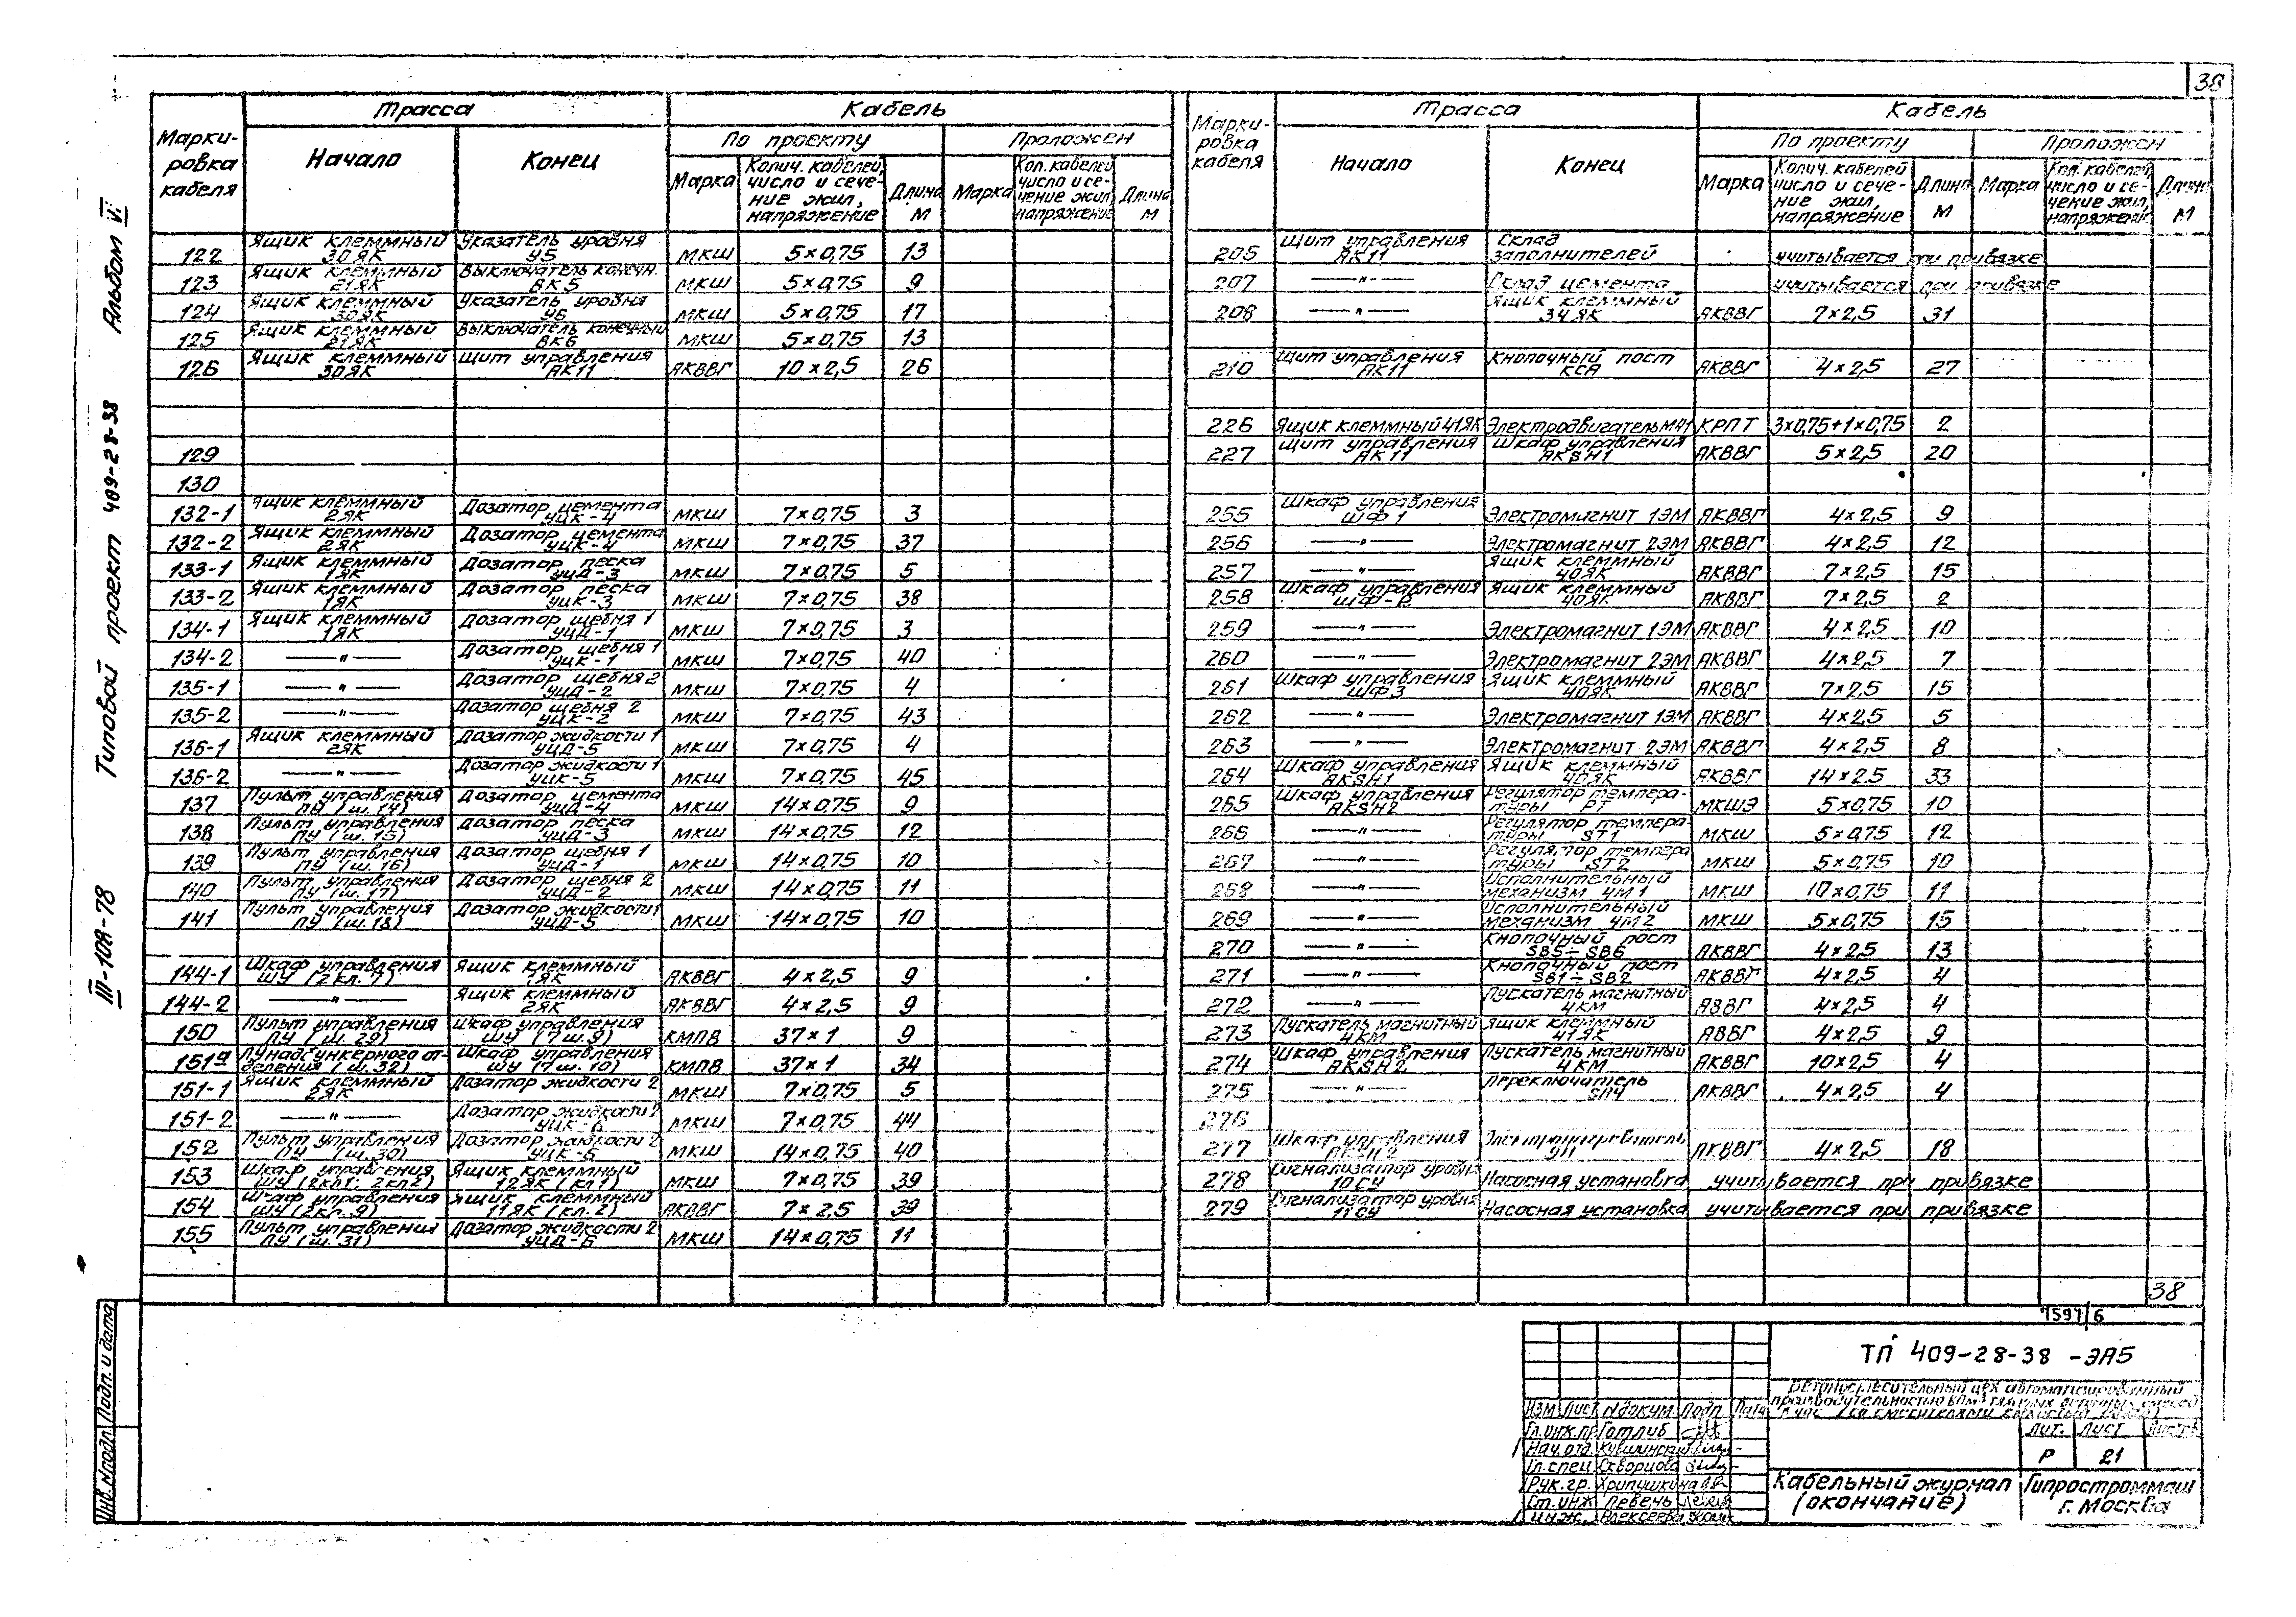 38
Альбом VI
Типовой проект 409-28-38
III-108-78
Инв. № подл. Подп. и дата
Марки-ровка кабеля | Трасса | Кабель
Начало | Конец | По проекту | Проложен
Марка | Колич. кабелей, число и сече-ние жил, напряжение | Длина м | Марка | Кол. кабелей число и се-чение жил, напряжение | Длина м
122 Ящик клеммный 30ЯК Указатель уровня У5 МКШ 5×0,75 13
123 Ящик клеммный 21ЯК Выключатель конечн. ВК5 МКШ 5×0,75 9
124 Ящик клеммный 30ЯК Указатель уровня У6 МКШ 5×0,75 17
125 Ящик клеммный 21ЯК Выключатель конечный ВК6 МКШ 5×0,75 13
126 Ящик клеммный 30ЯК Щит управления АК11 АКВВГ 10×2,5 26
129
130
132-1 Ящик клеммный 2ЯК Дозатор цемента УЦК-4 МКШ 7×0,75 3
132-2 Ящик клеммный 2ЯК Дозатор цемента УЦК-4 МКШ 7×0,75 37
133-1 Ящик клеммный 1ЯК Дозатор песка УЦД-3 МКШ 7×0,75 5
133-2 Ящик клеммный 1ЯК Дозатор песка УЦК-3 МКШ 7×0,75 38
134-1 Ящик клеммный 1ЯК Дозатор щебня 1 УЦД-1 МКШ 7×0,75 3
134-2 —"— Дозатор щебня 1 УЦК-1 МКШ 7×0,75 40
135-1 —"— Дозатор щебня 2 УЦД-2 МКШ 7×0,75 4
135-2 —"— Дозатор щебня 2 УЦК-2 МКШ 7×0,75 43
136-1 Ящик клеммный 2ЯК Дозатор жидкости 1 УЦД-5 МКШ 7×0,75 4
136-2 —"— Дозатор жидкости 1 УЦК-5 МКШ 7×0,75 45
137 Пульт управления ПУ (ш. 14) Дозатор цемента УЦД-4 МКШ 14×0,75 9
138 Пульт управления ПУ (ш. 15) Дозатор песка УЦД-3 МКШ 14×0,75 12
139 Пульт управления ПУ (ш. 16) Дозатор щебня 1 УЦД-1 МКШ 14×0,75 10
140 Пульт управления ПУ (ш. 17) Дозатор щебня 2 УЦД-2 МКШ 14×0,75 11
141 Пульт управления ПУ (ш. 18) Дозатор жидкости 1 УЦД-5 МКШ 14×0,75 10
144-1 Шкаф управления ШУ (2кл. 7) Ящик клеммный 1ЯК АКВВГ 4×2,5 9
144-2 —"— Ящик клеммный 2ЯК АКВВГ 4×2,5 9
150 Пульт управления ПУ (ш. 29) Шкаф управления ШУ (7ш.9) КМПВ 37×1 9
151а ПУ надбункерного от-деления (ш. 32) Шкаф управления ШУ (7ш. 10) КМПВ 37×1 34
151-1 Ящик клеммный 2ЯК Дозатор жидкости 2 МКШ 7×0,75 5
151-2 —"— Дозатор жидкости 2 УЦК-6 МКШ 7×0,75 44
152 Пульт управления ПУ (ш.30) Дозатор жидкости 2 УЦК-6 МКШ 14×0,75 40
153 Шкаф управления ШУ (2кл1; 2кл2) Ящик клеммный 12ЯК (кл1) МКШ 7×0,75 39
154 Шкаф управления ШУ (2кл.9) Ящик клеммный 11ЯК (кл.2) АКВВГ 7×2,5 39
155 Пульт управления ПУ (ш.31) Дозатор жидкости 2 УЦД-6 МКШ 14×0,75 11
Марки-ровка кабеля | Трасса | Кабель
Начало | Конец | По проекту | Проложен
Марка | Колич. кабелей число и сече-ние жил, напряжение | Длина м | Марка | Кол. кабелей число и се-чение жил, напряжение | Длина м
205 Щит управления АК11 Склад заполнителей учитывается при привязке
207 —"— Склад цемента учитывается при привязке
208 —"— Ящик клеммный 34ЯК АКВВГ 7×2,5 31
210 Щит управления АК11 Кнопочный пост КСА АКВВГ 4×2,5 27
226 Ящик клеммный 41ЯК Электродвигатель М41 КРПТ 3×0,75+1×0,75 2
227 Щит управления АК11 Шкаф управления АКSН1 АКВВГ 5×2,5 20
255 Шкаф управления ШФ1 Электромагнит 1ЭМ АКВВГ 4×2,5 9
256 —"— Электромагнит 2ЭМ АКВВГ 4×2,5 12
257 —"— Ящик клеммный 40ЯК АКВВГ 7×2,5 15
258 Шкаф управления ШФ-2 Ящик клеммный 40ЯК АКВВГ 7×2,5 2
259 —"— Электромагнит 1ЭМ АКВВГ 4×2,5 10
260 —"— Электромагнит 2ЭМ АКВВГ 4×2,5 7
261 Шкаф управления ШФ3 Ящик клеммный 40ЯК АКВВГ 7×2,5 15
262 —"— Электромагнит 1ЭМ АКВВГ 4×2,5 5
263 —"— Электромагнит 2ЭМ АКВВГ 4×2,5 8
264 Шкаф управления АКSН1 Ящик клеммный 40ЯК АКВВГ 14×2,5 33
265 Шкаф управления АКSН2 Регулятор темпера-туры РТ МКШЭ 5×0,75 10
266 —"— Регулятор темпера-туры SТ1 МКШ 5×0,75 12
267 —"— Регулятор темпера-туры SТ2 МКШ 5×0,75 10
268 —"— Исполнительный механизм ЧМ1 МКШ 10×0,75 11
269 —"— Исполнительный механизм ЧМ2 МКШ 5×0,75 15
270 —"— Кнопочный пост SB5÷SB6 АКВВГ 4×2,5 13
271 —"— Кнопочный пост SB1÷SB2 АКВВГ 4×2,5 4
272 —"— Пускатель магнитный 4КМ АВВГ 4×2,5 4
273 Пускатель магнитный 4КМ Ящик клеммный 41ЯК АВВГ 4×2,5 9
274 Шкаф управления АКSН2 Пускатель магнитный 4КМ АКВВГ 10×2,5 4
275 —"— Переключатель АКВВГ 4×2,5 4
276
277 Шкаф управления АКSН2 АКВВГ 4×2,5 18
278 Сигнализатор уровня 10СУ Насосная установка учитывается при привязке
279 Сигнализатор уровня 11СУ Насосная установка учитывается при привязке
38
7597/6
ТП 409-28-38 -ЭА5
Бетоносмесительный цех автоматизированный
производительностью 60м³ тяжелых бетонных смесей
Изм Лист № докум. Подп. Дата
Гл.инж.пр Готлиб
Нач. отд. Кувшинский
Гл. спец Скворцова
Рук. гр. Хрипушкина
Ст. инж Левечь
Инж. Алексеева
Лит. Лист Листов
Р 21
Кабельный журнал
(окончание)
Гипростроммаш
г. Москва